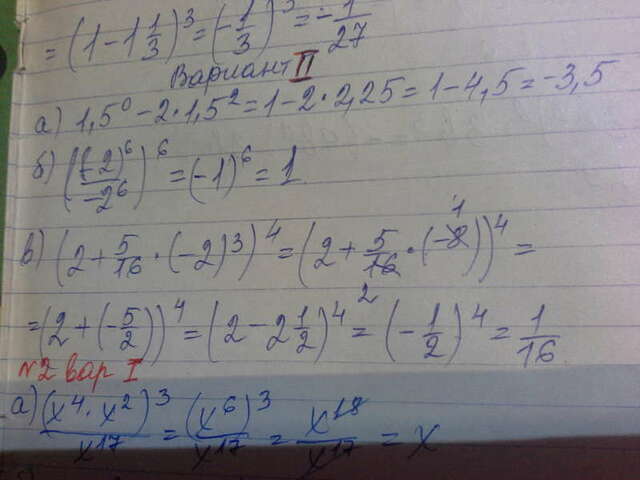 = (1 - 1 1/3)³ = (-1/3)³ = -1/27
Вариант II
а) 1,5⁰ - 2 · 1,5² = 1 - 2 · 2,25 = 1 - 4,5 = -3,5
б) ((-2)⁶/-2⁶)⁶ = (-1)⁶ = 1
в) (2 + 5/16 · (-2)³)⁴ = (2 + 5/16 · (-8))⁴ =
= (2 + (-5/2))⁴ = (2 - 2 1/2)⁴ = (-1/2)⁴ = 1/16
№2 вар I
а) (x⁴ · x²)³/x¹⁷ = (x⁶)³/x¹⁷ = x¹⁸/x¹⁷ = x